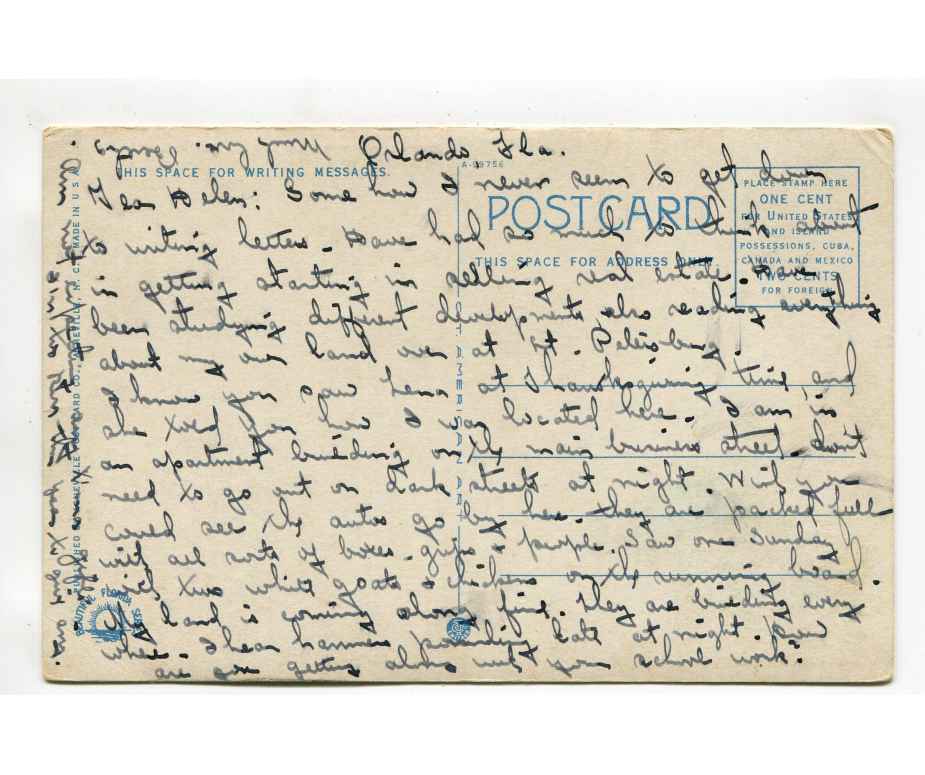 Orlando, Fla.
Dear Helen: Some how I never seem to get down
to writing letters. Have had so much to think about
in getting starting in selling real estate. Have
been studying different developments, also reading everything
about my own land over at St. Petersburg.
I know you saw Lena at Thanksgiving time, and
she told you how I was located here. I am in
an apartment building on the main business street. don't
need to go out on dark streets at night. Wish you
could see the autos go by here. they are packed full
with all sorts of boxes - grips & people. Saw one Sunday
with two white goats & chickens on the running board.
My land is coming along fine. They are building every
where. I hear hammers pounding late at night. How
are you getting along with your school work?
THIS SPACE FOR WRITING MESSAGES.
A-99756
POST CARD
THIS SPACE FOR ADDRESS ONLY.
PLACE STAMP HERE
ONE CENT
FOR UNITED STATES
AND ISLAND
POSSESSIONS, CUBA,
CANADA AND MEXICO
TWO CENTS
FOR FOREIGN
MADE IN U.S.A.